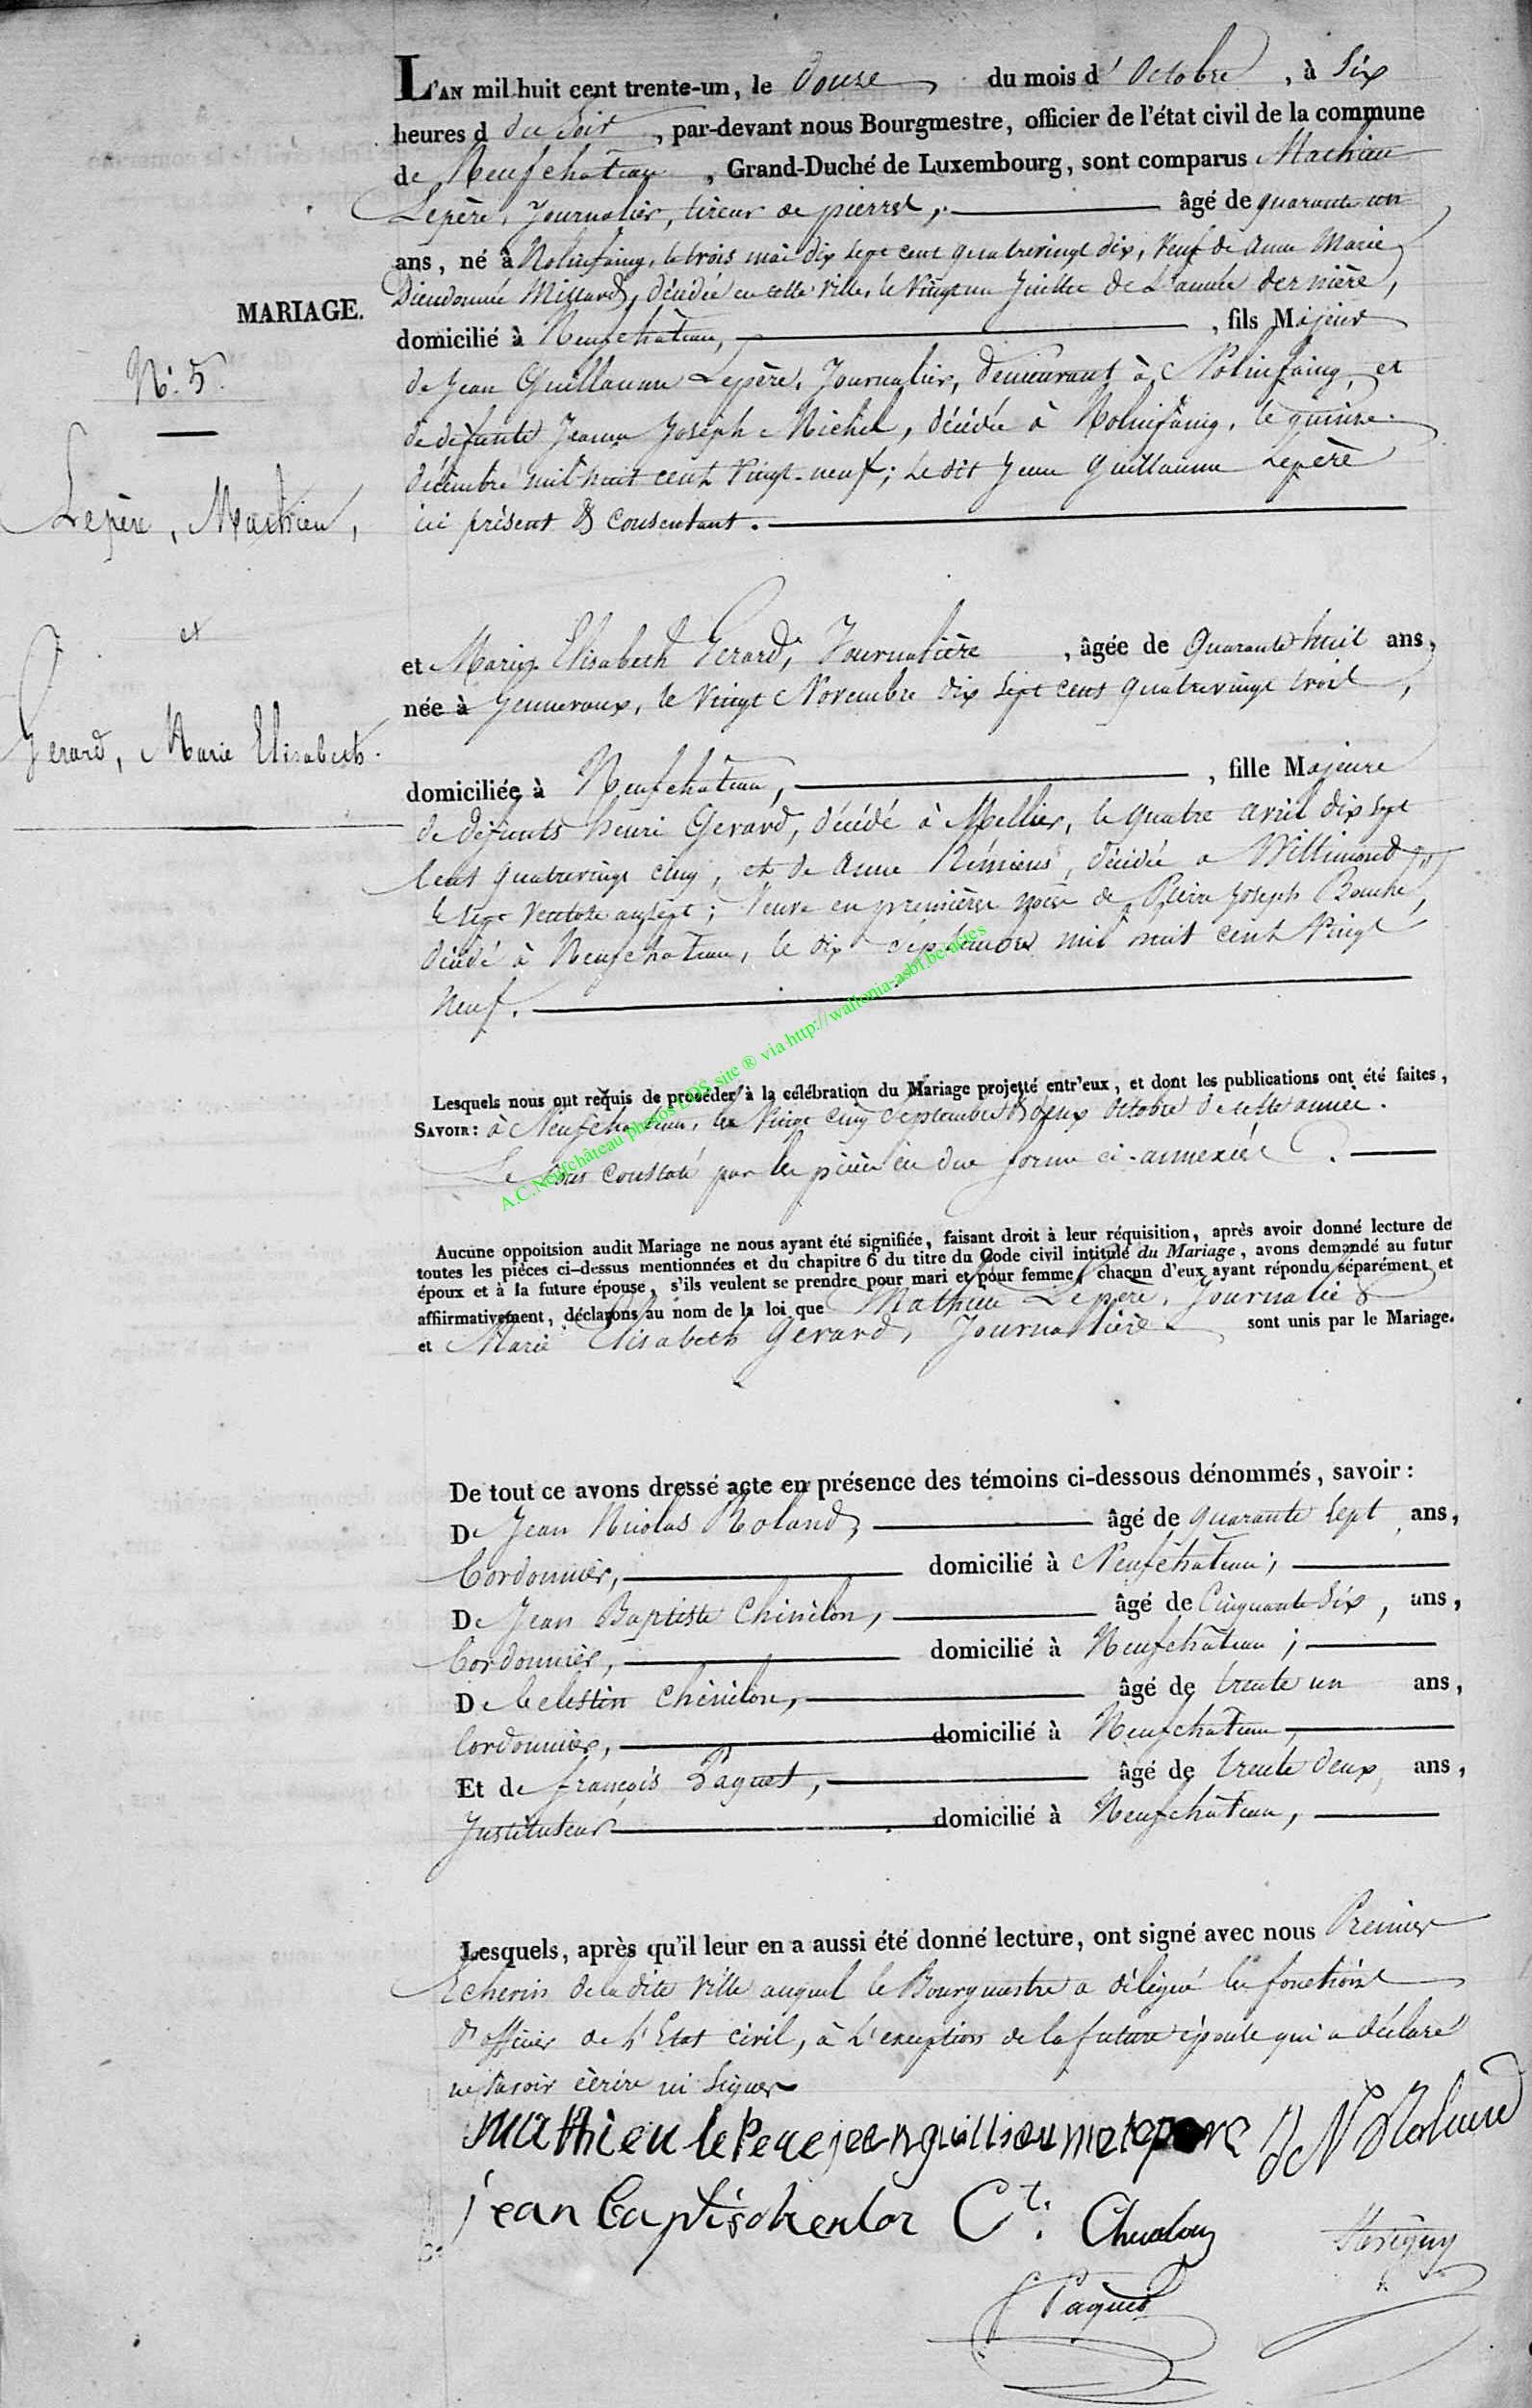 L'AN mil huit cent trente-un, le douze du mois d' Octobre, à Six
heures d du Soir, par-devant nous Bourgmestre, officier de l'état civil de la commune
de Neufchateau, Grand-Duché de Luxembourg, sont comparus Mathieu
Lepère, Journalier, tireur de pierres, âgé de quarante un
ans, né à Nolinfaing, le trois mai dix sept cent quatrevingt dix, Veuf de Anne Marie
Dieudonnée Millard, décédée en cette ville, le Vingt un Juillet de L'année dernière,
MARIAGE.
domicilié à Neufchâteau, fils Majeur
N.° 5.
de Jean Guillaume Lepère, Journalier, demeurant à Nolinfaing, et
de défunte Jeanne Joseph Michel, décédée à Nolinfaing, le quinze
décembre mil huit cent Vingt-neuf; Le dit Jean Guillaume Lepère
Lepère, Mathieu,
ici présent & consentant.
et
et Marie Elisabeth Gerard, Journalière, âgée de Quarante huit ans,
née à Gennevaux, le Vingt Novembre dix Sept cent quatrevingt trois,
Gerard, Marie Elisabeth.
domiciliée à Neufchateau, fille Majeure
de défunts henri Gerard, décédé à Mellier, le quatre avril dix sept
Cent quatrevingt cinq, et de Anne décédée a Wittimont
le sept Ventose an sept; Veuve en première noces de Pierre Joseph
décédé à Neufchateau, le dix Septembre mil huit cent Vingt
Neuf.
A.C.Neufchâteau photos EDS site ® via http://wallonia-asbl.be/actes
Lesquels nous ont requis de procéder à la célébration du Mariage projetté entr'eux, et dont les publications ont été faites,
SAVOIR: à Neufchateau, les Vingt cinq Septembre & deux Octobre de cette année.
Le tout constaté par les pièces en due forme ci-annexées.
Aucune oppoitsion audit Mariage ne nous ayant été signifiée, faisant droit à leur réquisition, après avoir donné lecture de
toutes les pièces ci-dessus mentionnées et du chapitre 6 du titre du Code civil intitulé du Mariage, avons demandé au futur
époux et à la future épouse, s'ils veulent se prendre pour mari et pour femme, chacun d'eux ayant répondu séparément et
affirmativement, déclarons au nom de la loi que Mathieu Lepère, Journalier
et Marie Elisabeth Gerard, Journalière sont unis par le Mariage.
De tout ce avons dressé acte en présence des témoins ci-dessous dénommés, savoir:
De Jean Nicolas Roland, âgé de quarante Sept ans,
Cordonnier, domicilié à Neufchâteau;
De Jean Baptiste Chénelon, âgé de Cinquante Six, ans,
Cordonnier, domicilié à Neufchâteau;
De Celestin Chénelon, âgé de trente un ans,
Cordonnier, domicilié à Neufchateau,
Et de françois Paquet, âgé de trente deux, ans,
Instituteur domicilié à Neufchâteau,
Lesquels, après qu'il leur en a aussi été donné lecture, ont signé avec nous Premier
Echevin de la dite Ville auquel le Bourgmestre a délégué les fonctions
d'officier de L'Etat civil, à L'exception de la future épouse qui a déclaré
ne savoir écrire ni Signer
Mathieu lePere jean guilliaume lepere J N Roland
jean baptis chenlon C.t. Chenelon
F Paquet